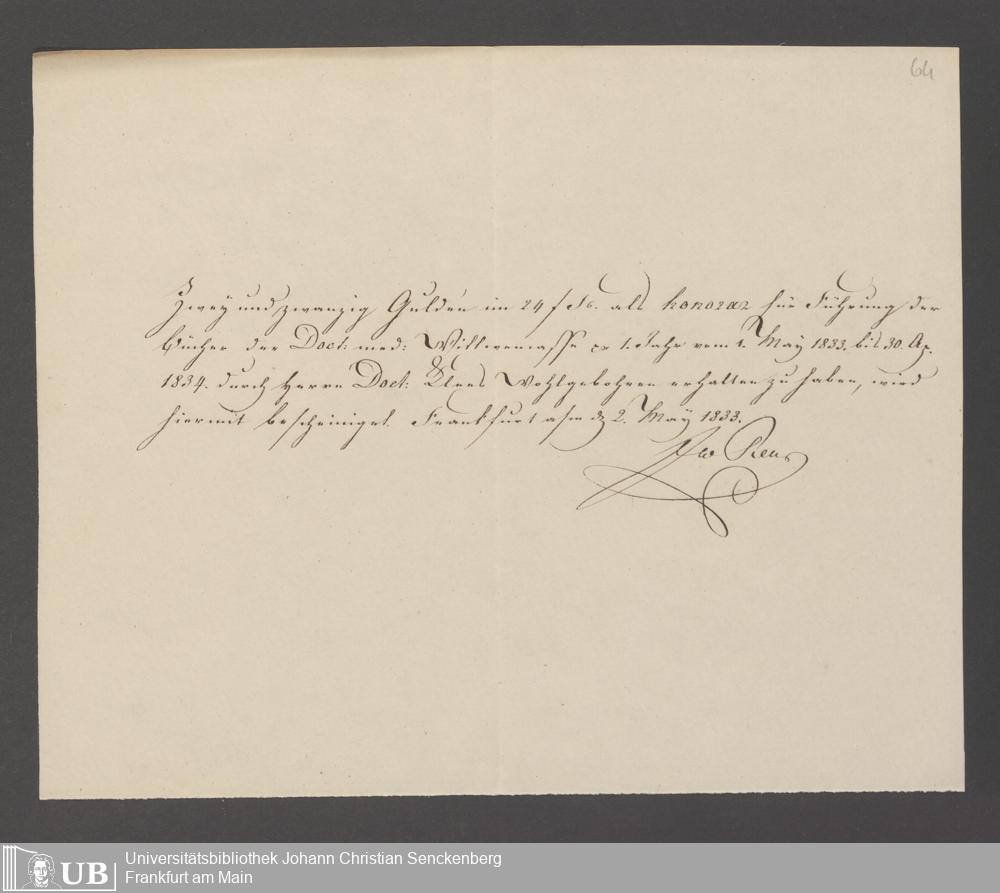 64
Zwey und zwanzig Gulden im 24 f Fs. als honorar für Führung der
Bücher der Doct: med: Wittwencasse pr 1. Jahr vom 1. May 1833. bis 30. Ap.
1834. durch Herrn Doct: Klees Wohlgebohren erhalten zu haben, wird
hiermit bescheiniget. Frankfurt a/m d 2. May 1833.
UB Universitätsbibliothek Johann Christian Senckenberg
Frankfurt am Main